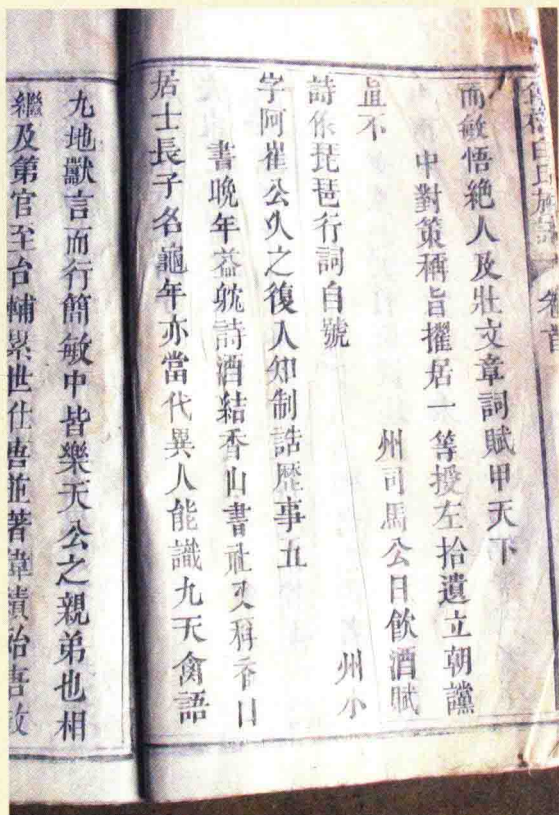 白氏族譜
卷首
而敏悟絕人及壯文章詞賦甲天下
中對策稱旨擢居一等授左拾遺立朝讜
州司馬公日飲酒賦
直不
州小
詩作琵琶行詞自號
字阿崔公久之復入知制誥歷事五
書晚年益躭詩酒結香山書社又稱香山
居士長子名龜年亦當代異人能識九天禽語
九地獸言而行簡敏中皆樂天公之親弟也相
繼及第官至台輔累世仕唐並著偉績始吾敏